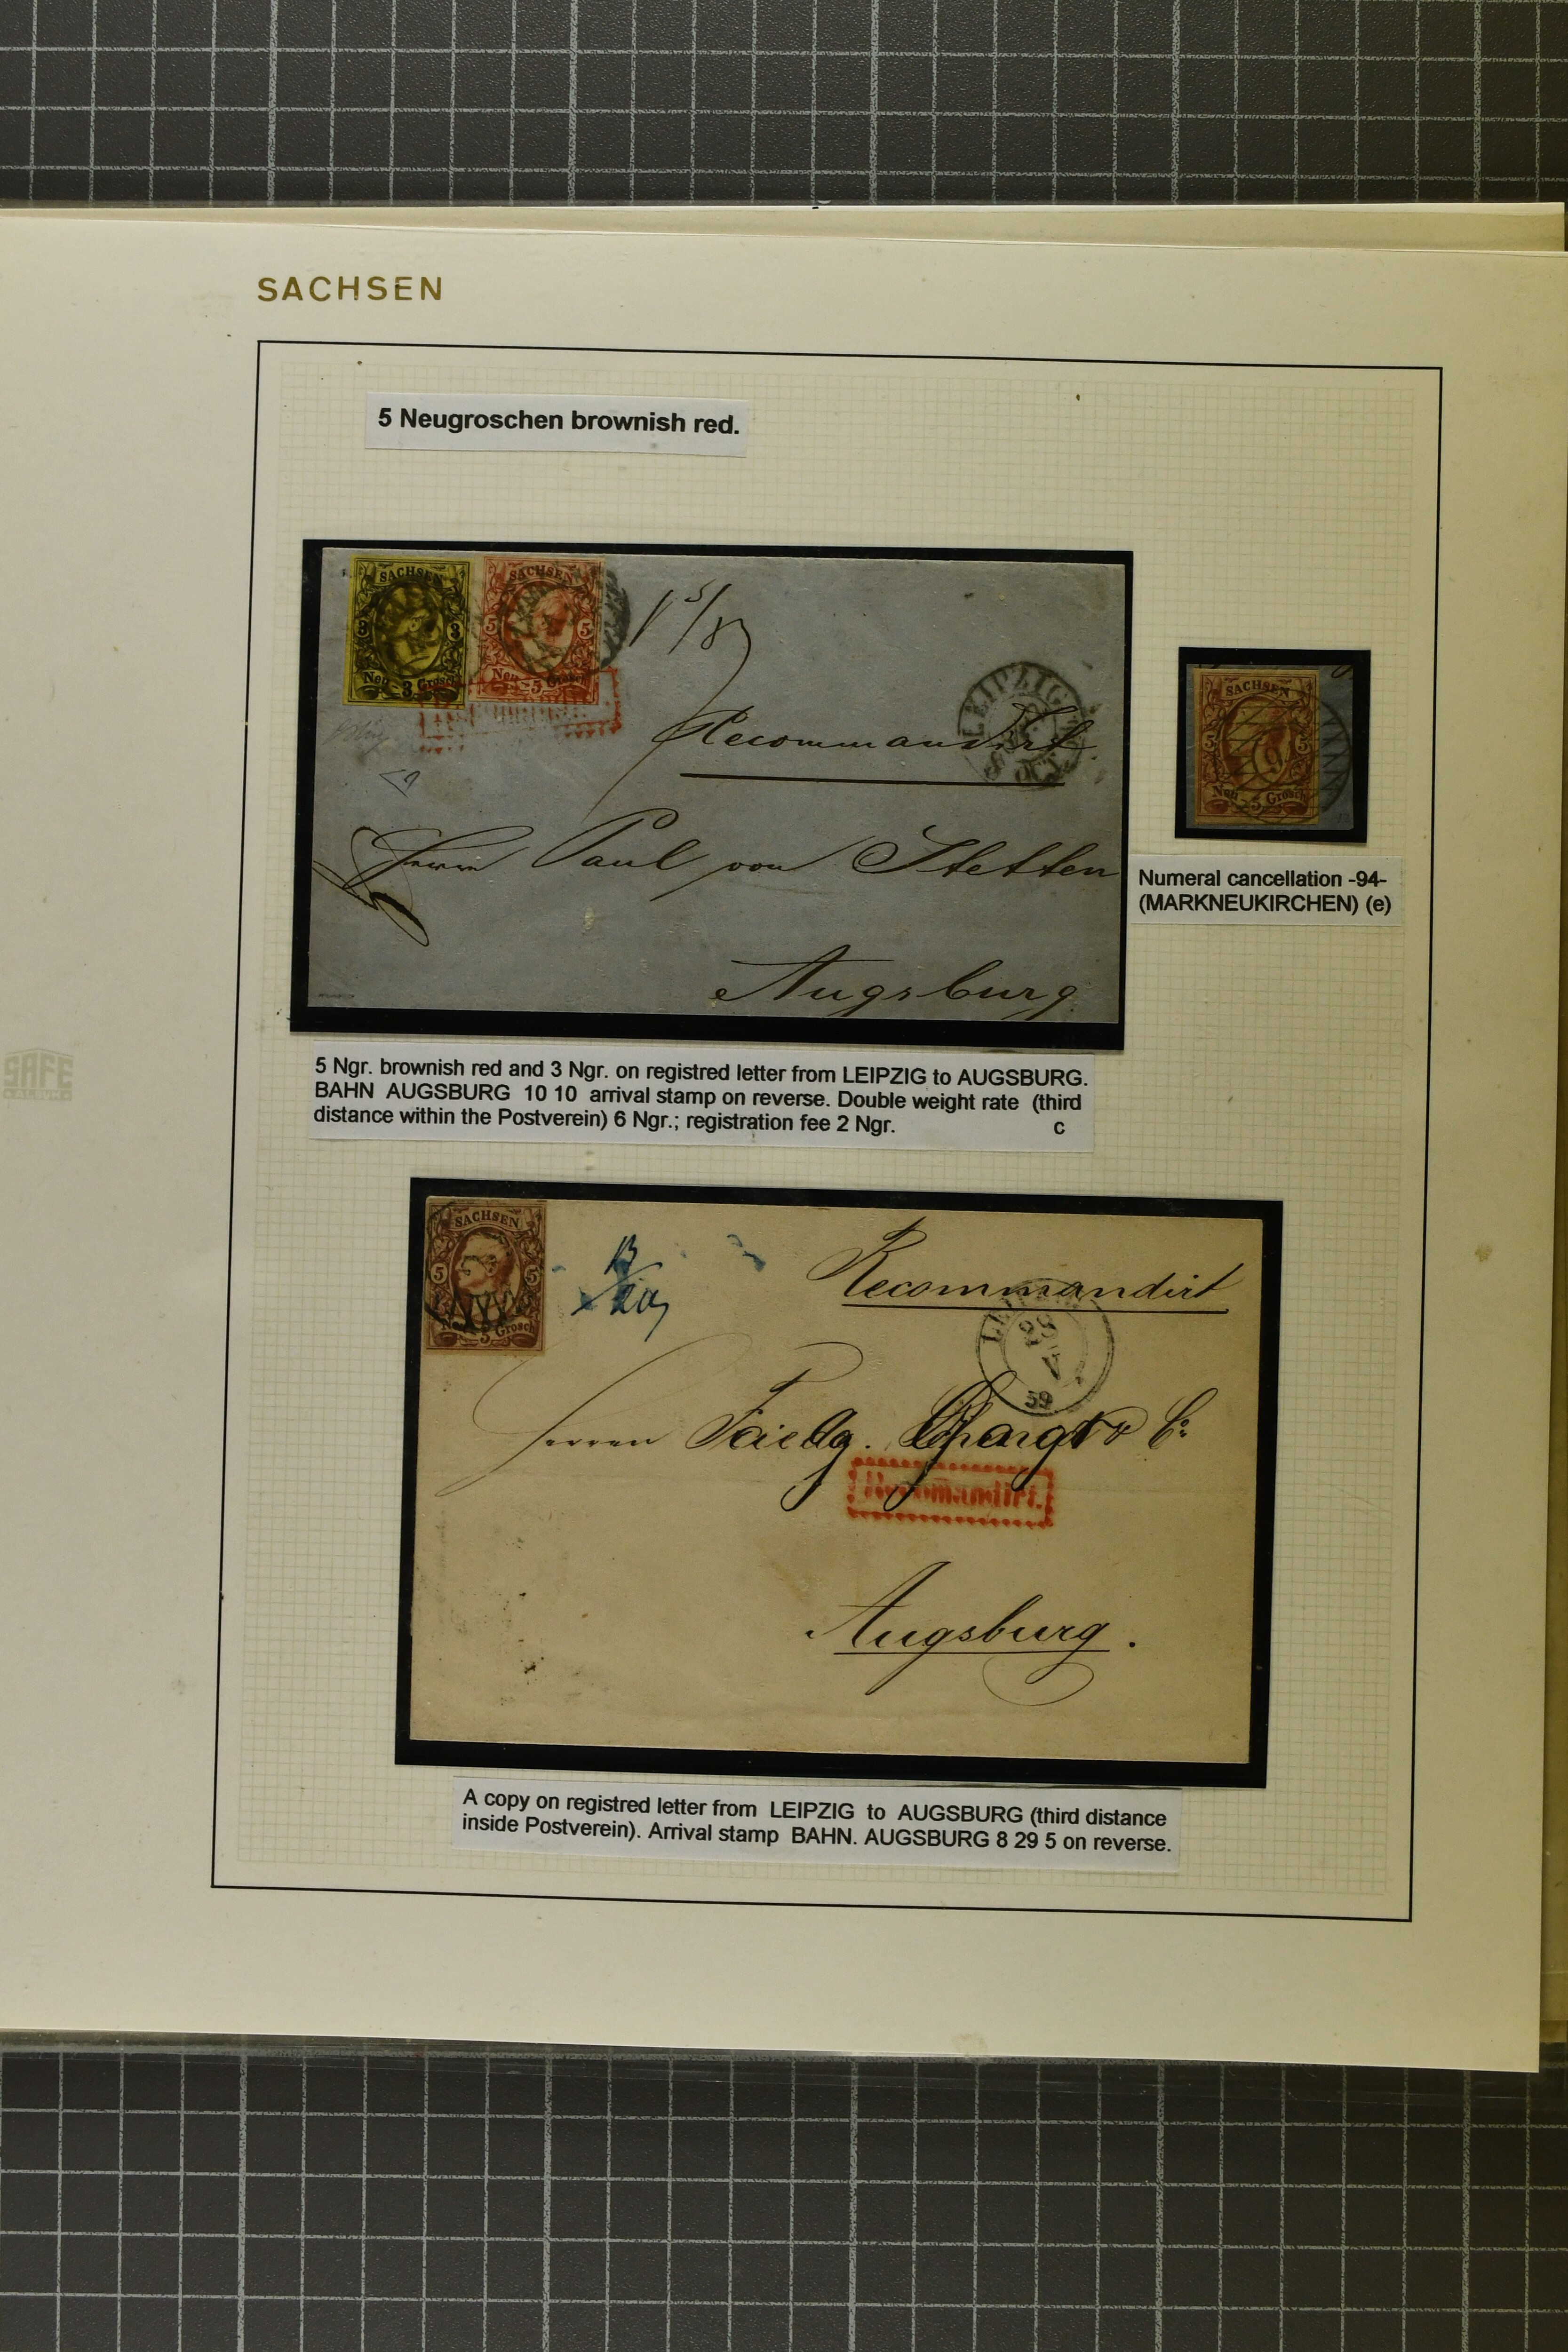 SACHSEN
5 Neugroschen brownish red.
SACHSEN
3 3
Neu 3 Grosch
SACHSEN
5 5
Neu 5 Grosch
LEIPZIG
OCT
Recommandirt
Herrn Paul von Stetten
Augsburg
SACHSEN
5 5
Neu 5 Grosch
Numeral cancellation -94-
(MARKNEUKIRCHEN) (e)
5 Ngr. brownish red and 3 Ngr. on registred letter from LEIPZIG to AUGSBURG.
BAHN AUGSBURG 10 10 arrival stamp on reverse. Double weight rate (third
distance within the Postverein) 6 Ngr.; registration fee 2 Ngr. c
SAFE
ALBUM
SACHSEN
5 5
Neu 5 Grosch
Recommandirt
28
V
59
Herren
Recomandirt.
Augsburg.
A copy on registred letter from LEIPZIG to AUGSBURG (third distance
inside Postverein). Arrival stamp BAHN. AUGSBURG 8 29 5 on reverse.